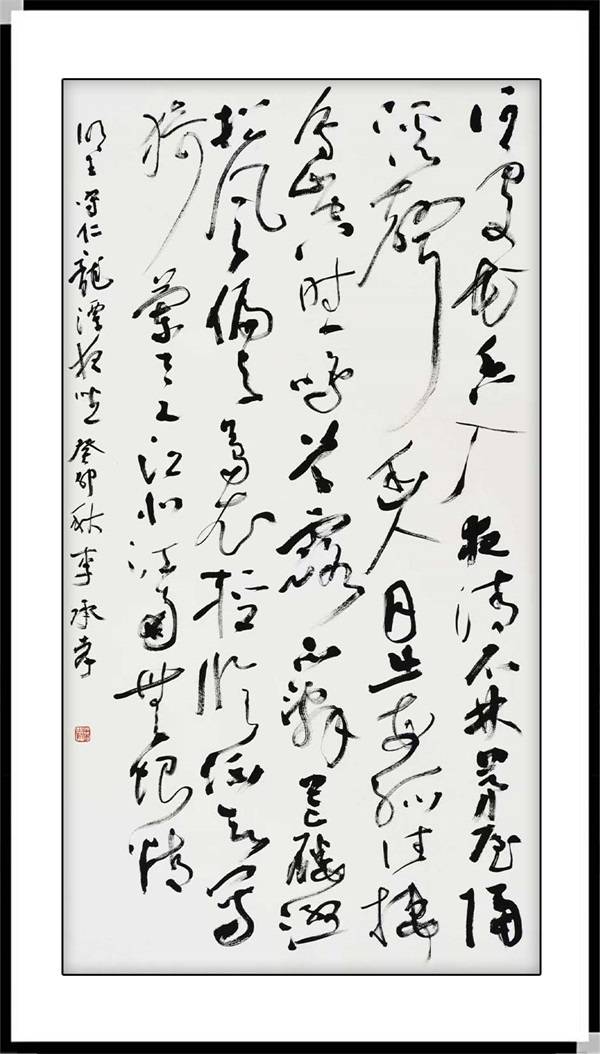 何處花香入夜清石林茅屋隔
溪聲幽人月出每孤往棲
鳥山空時一鳴草露不辭芒屨濕
松風偏與葛衣輕臨流欲寫
猗蘭意江北江南無限情
明王守仁龍潭夜坐 癸卯秋 李承孝